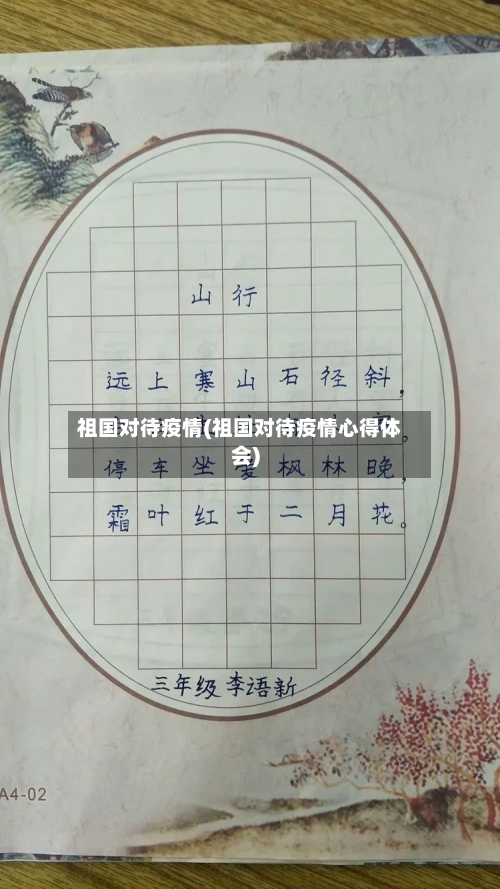 山行
远上寒山石径斜，
祖国对待疫情(祖国对待疫情心得体
会)
停车坐爱枫林晚，
霜叶红于二月花。
三年级李语新
A4-02